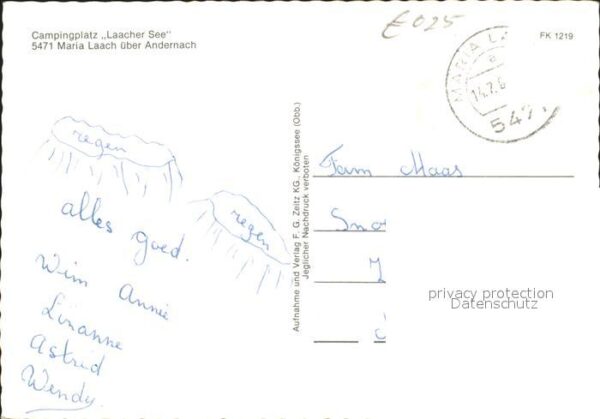 Campingplatz „Laacher See"
5471 Maria Laach über Andernach
FK 1219
MARIA L
a
14.7.6
547
regen
regen
alles goed.
Wim Annie
Lizanne
Astrid
Wendy.
Aufnahme und Verlag F. G. Zeitz KG., Königssee (Obb.)
Jeglicher Nachdruck verboten
Fam Maas
privacy protection
Datenschutz